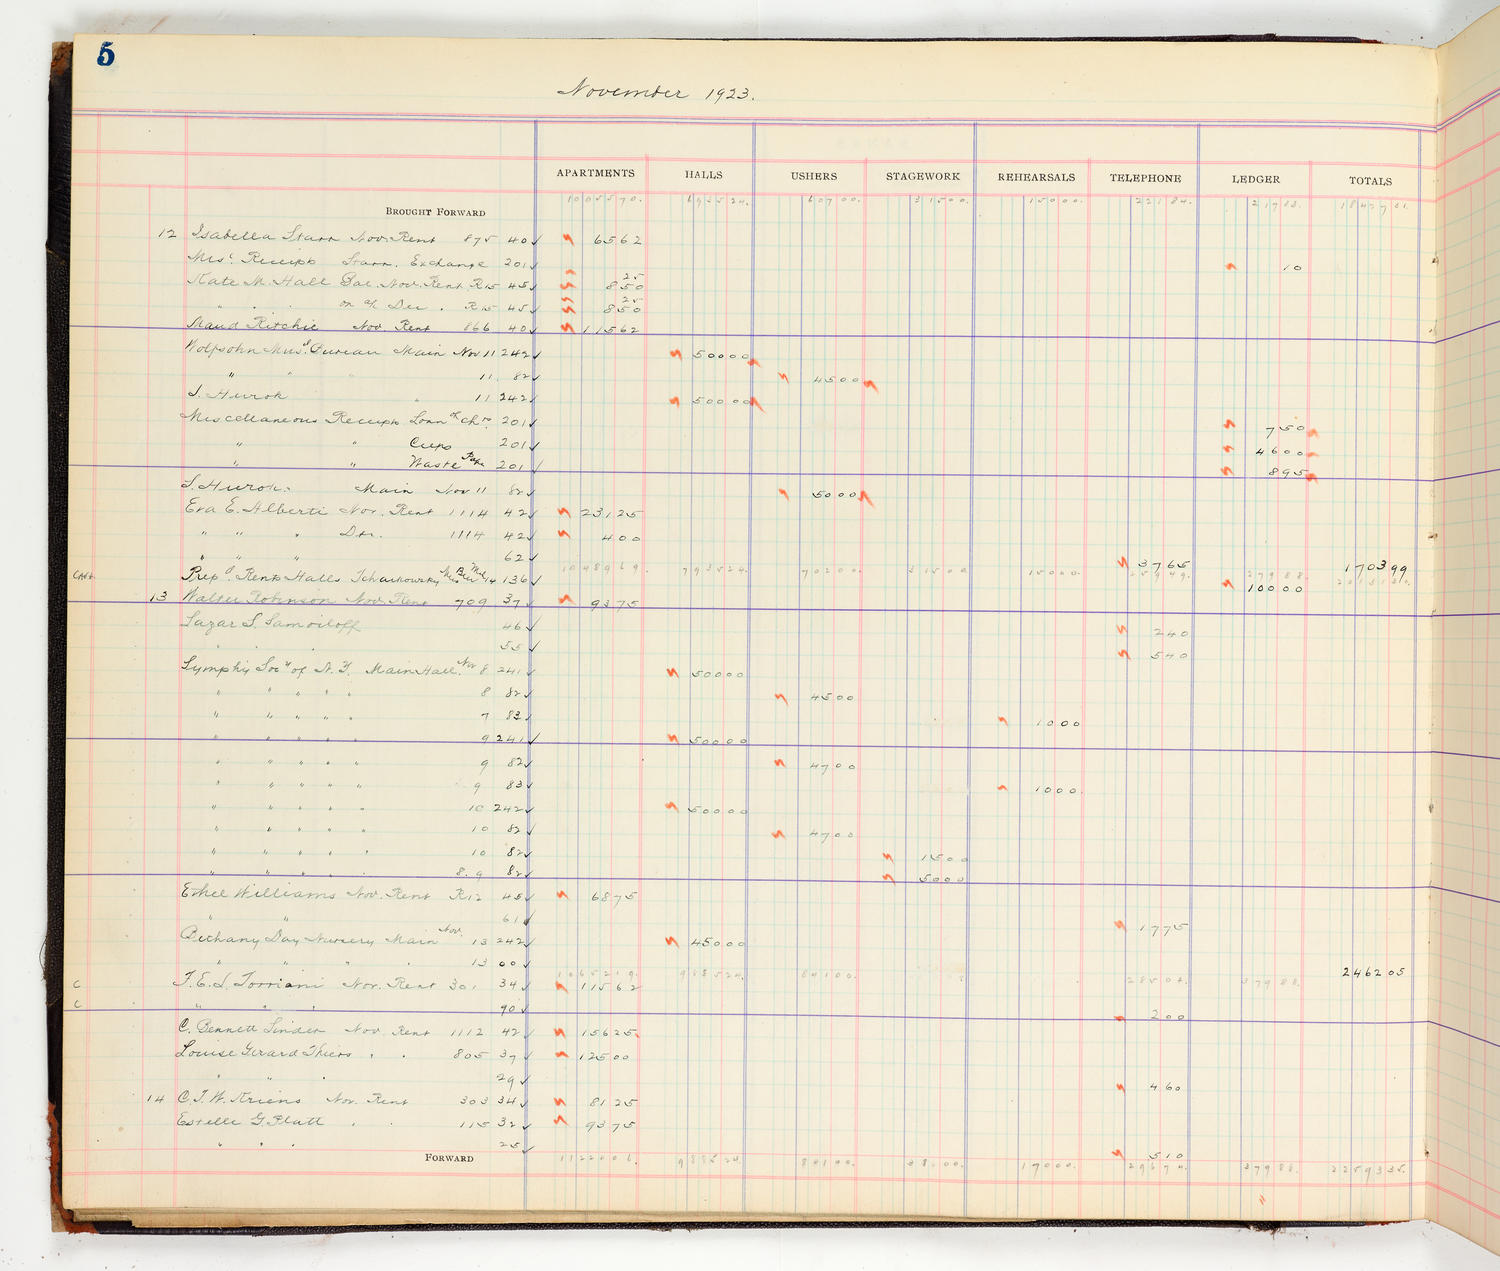 5
November 1923.
APARTMENTS HALLS USHERS STAGEWORK REHEARSALS TELEPHONE LEDGER TOTALS
BROUGHT FORWARD 1005570. 693524. 60700. 31500. 15000. 22184.
12 Isabella Starr Nov. Rent 875 40 ✓ 6562
Misc. Receipts Starr. Exchange 201 ✓ 10
Kate M. Hall Bal. Nov. Rent R15 45 ✓ 25 850
" " on a/c Dec. R15 45 ✓ 25 850
Maud Ritchie Nov Rent 866 40 ✓ 11562
Wolfsohn Mus'l Bureau Main Nov 11 242 ✓ 50000
" " " 11 82 ✓ 4500
S. Hurok " 11 242 ✓ 50000
Miscellaneous Receipts Loan of Chr. 201 ✓ 750
" " Cups 201 ✓ 4600
" " Waste Paper 201 ✓ 895
S. Hurok. Main Nov 11 82 ✓ 5000
Eva E. Alberti Nov. Rent 1114 42 ✓ 23125
" " " Dec. 1114 42 ✓ 400
" " " 62 ✓ 3765 170399
Prep'd. Rents Halls Tchaikowsky 14 136 ✓ 10000
13 Walter Robinson Nov. Rent 709 37 ✓ 9375
Lazar S. Samoiloff 46 ✓ 240
" " " 55 ✓ 540
Symphy Soc'y of N.Y. Main Hall Nov 8 241 ✓ 50000
" " " " " 8 82 ✓ 4500
" " " " " 7 83 ✓ 1000
" " " " " 9 241 ✓ 50000
" " " " " 9 82 ✓ 4700
" " " " " 9 83 ✓ 1000
" " " " " 10 242 ✓ 50000
" " " " " 10 82 ✓ 4700
" " " " " 10 82 ✓ 1500
" " " " " 8.9 82 ✓ 5000
Ethel Williams Nov. Rent R12 45 ✓ 6875
" " 61 ✓ 1775
Bethany Day Nursery Main Nov. 13 242 ✓ 45000
" " " " 13 00 ✓ 246205
C F. E. L. Torriani Nov. Rent 301 34 ✓ 11562
C " " " 90 ✓ 200
C. Bennett Linder Nov Rent 1112 42 ✓ 15625
Louise Gerard Thiers " " 805 37 ✓ 12500
" " " 29 ✓ 460
14 C. T. W. Kriens Nov. Rent 303 34 ✓ 8125
Estelle G. Platt " " 115 32 ✓ 9375
" " " 25 ✓ 510
FORWARD 1122006. 988524. 80100. 38000. 17000. 29674. 37988. 2259335.